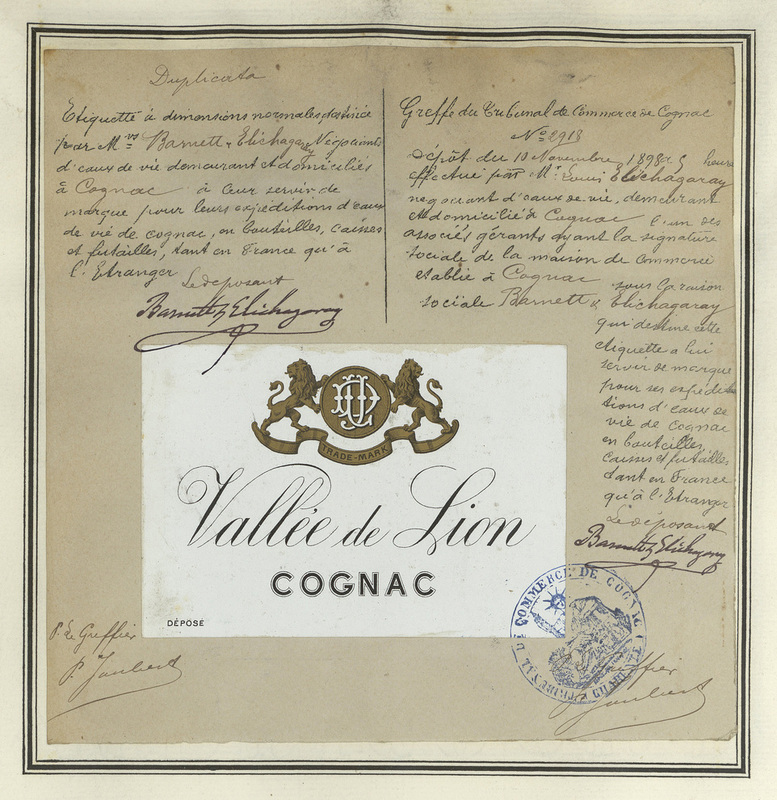 Duplicata
Etiquette à dimensions normales, destinée
par Mrs Barnett & Elichagaray Négociants
d'eaux de vie demeurant et domiciliés
à Cognac à leur servir de
marque pour leurs expéditions d'eaux
de vie de cognac, en bouteilles, caisses
et futailles, tant en France qu'à
l'Etranger
Le déposant
Barnett & Elichagaray
Greffe du Tribunal de Commerce de Cognac
No 2913
Dépôt du 10 Novembre 1898 à 5 heures
effectué par Mr Louis Elichagaray
négociant d'eaux de vie, demeurant
et domicilié à Cognac l'un des
associés gérants ayant la signature
sociale de la maison de commerce
établie à Cognac sous la raison
sociale Barnett & Elichagaray
qui destine cette
étiquette à lui
servir de marque
pour ses expédi-
tions d'eaux de
vie de cognac
en bouteilles,
caisses et futailles
tant en France
qu'à l'Etranger
Le déposant
Barnett & Elichagaray
TRADE-MARK
Vallée de Lion
COGNAC
DÉPOSÉ
P. Le Greffier
P. Joubert
TRIBUNAL DE COMMERCE DE COGNAC
Greffier
Joubert